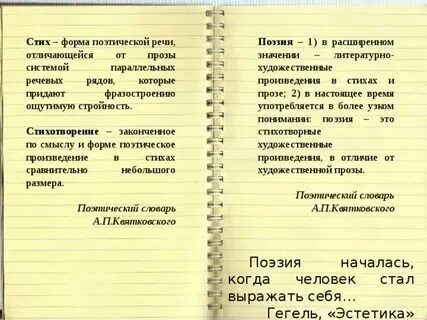 Стих – форма поэтической речи,
отличающейся от прозы
системой параллельных
речевых рядов, которые
придают фразостроению
ощутимую стройность.
Стихотворение – законченное
по смыслу и форме поэтическое
произведение в стихах
сравнительно небольшого
размера.
Поэтический словарь
А.П.Квятковского
Поэзия – 1) в расширенном
значении – литературно-
художественные
произведения в стихах и
прозе; 2) в настоящее время
употребляется в более узком
понимании: поэзия – это
стихотворные
художественные
произведения, в отличие от
художественной прозы.
Поэтический словарь
А.П.Квятковского
Поэзия началась,
когда человек стал
выражать себя…
Гегель, «Эстетика»